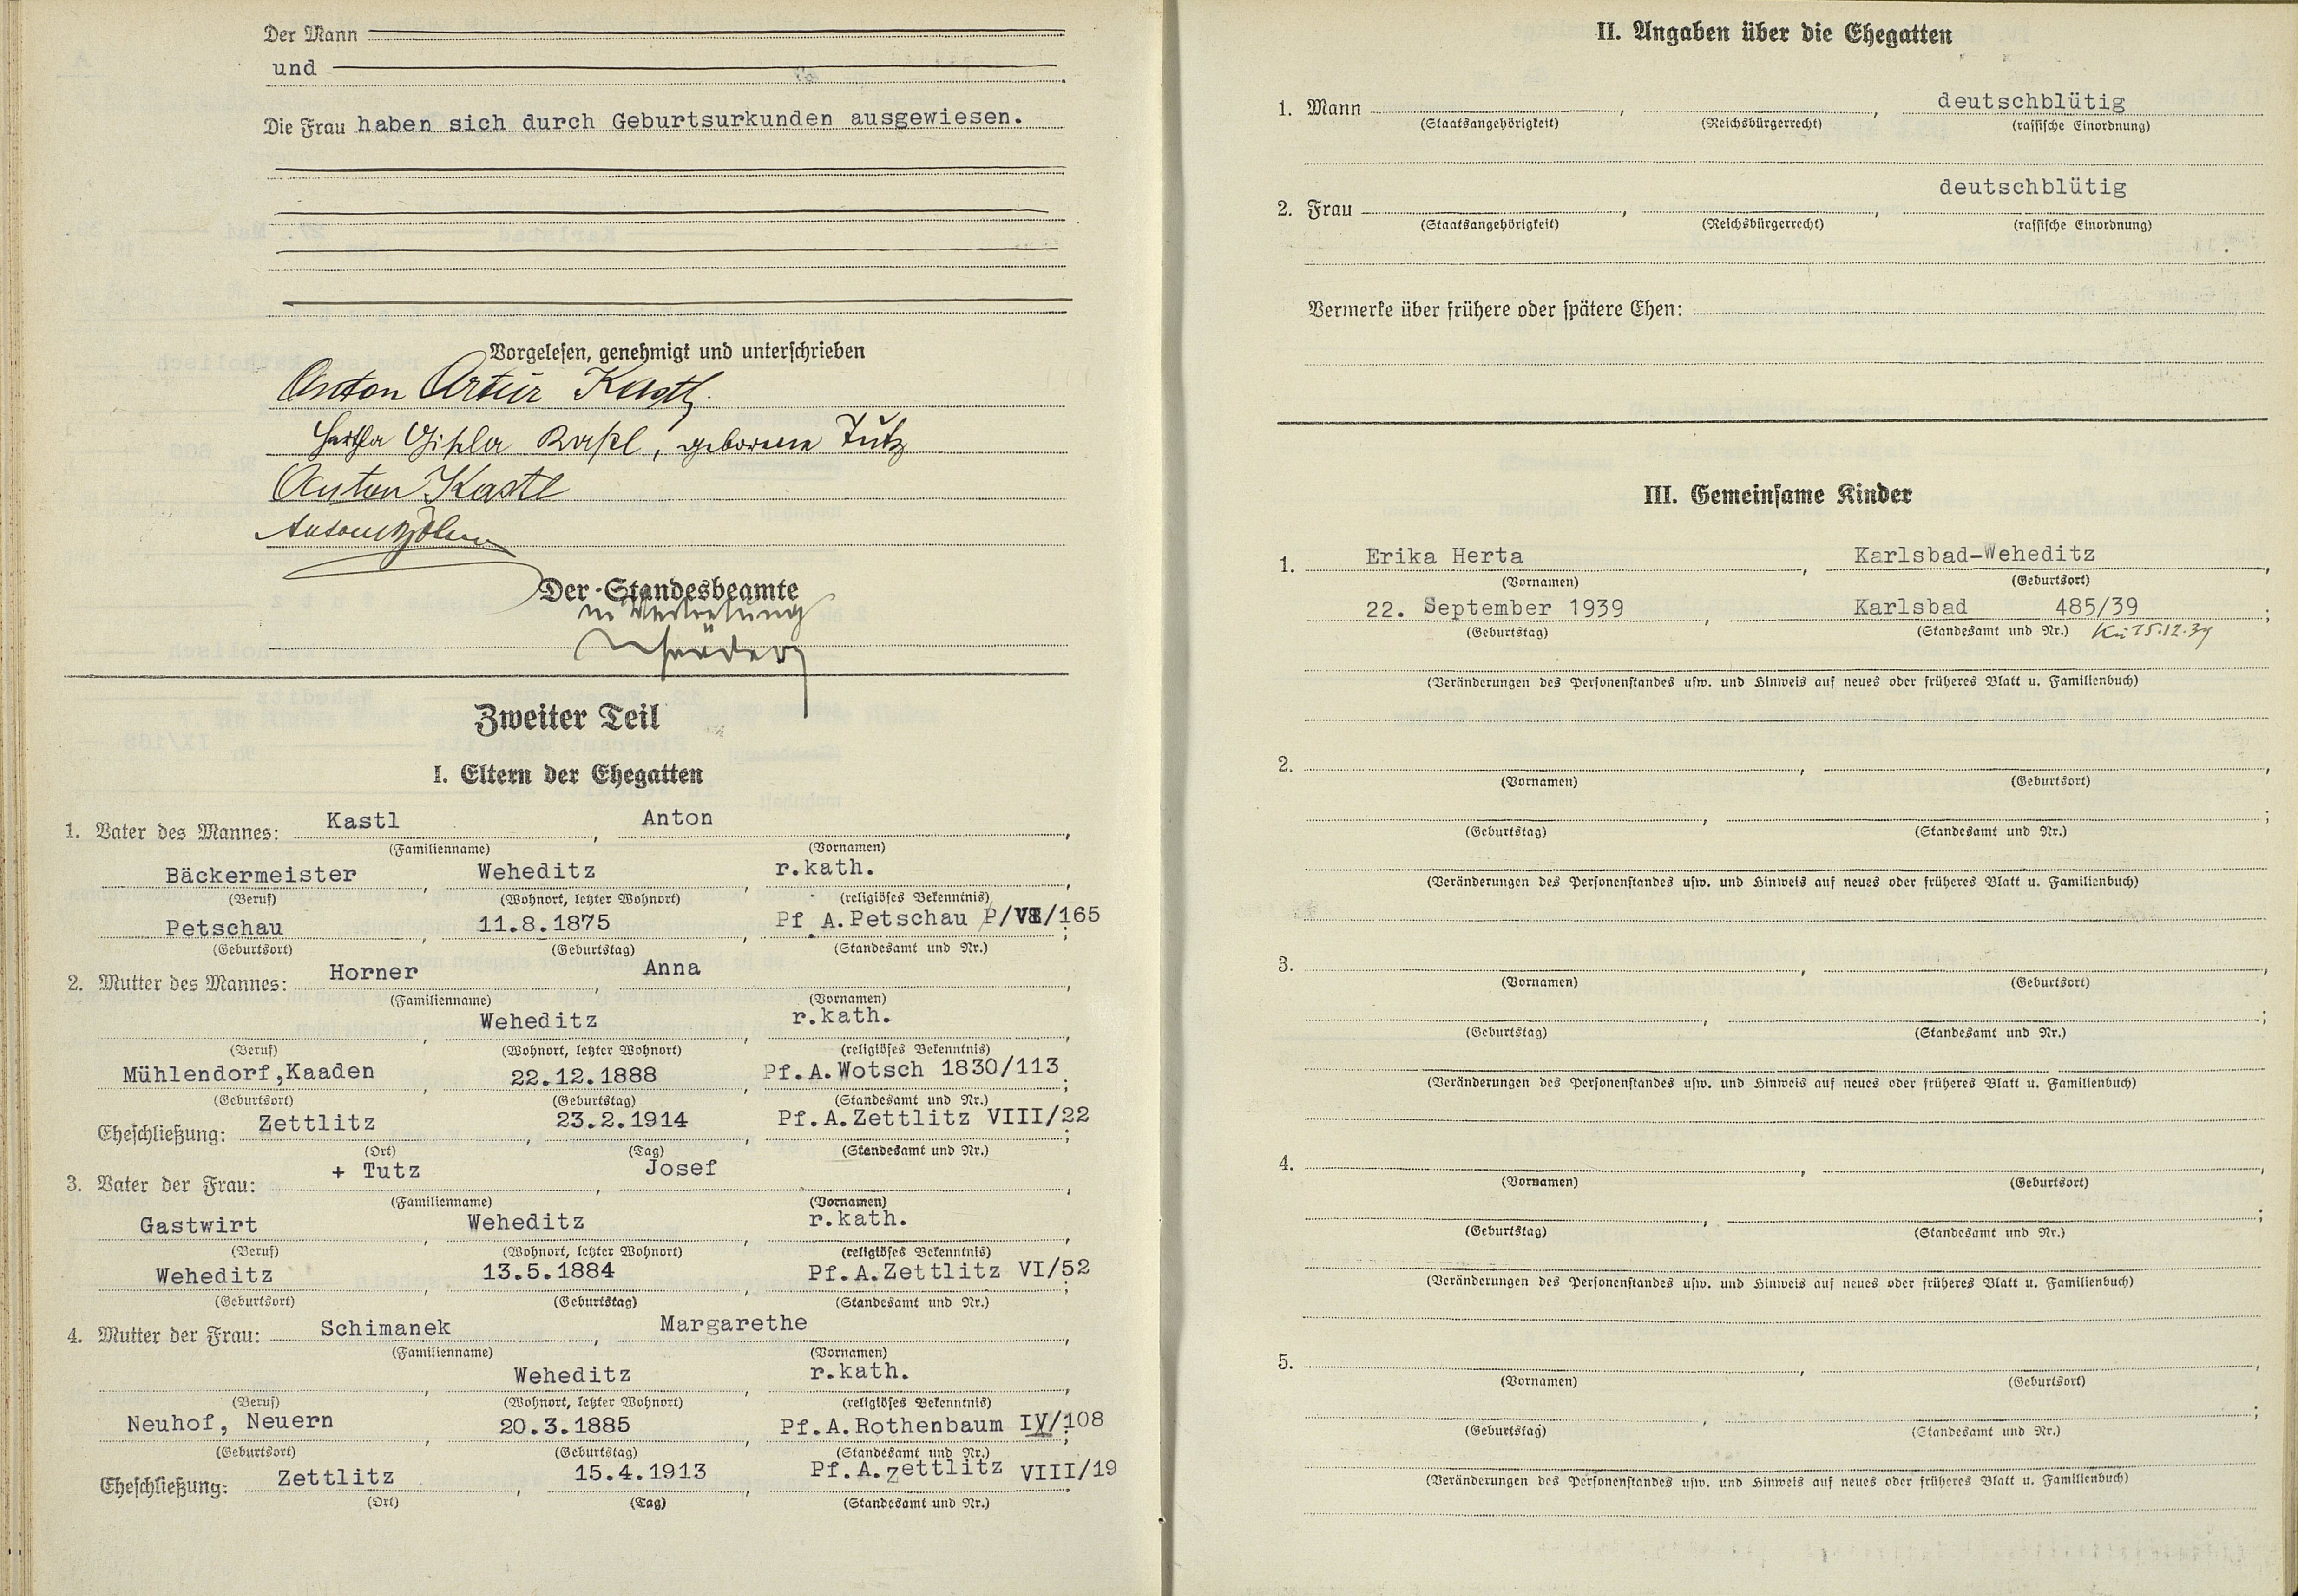 Der Mann
und
Die Frau haben sich durch Geburtsurkunden ausgewiesen.
Vorgelesen, genehmigt und unterschrieben
Anton Artur Kastl
Hertha Gisela Kastl, geborene Tutz
Anton Kastl
Anton
Der Standesbeamte
in Vertretung
Zweiter Teil
I. Eltern der Ehegatten
1. Vater des Mannes: Kastl, Anton,
(Familienname) (Vornamen)
Bäckermeister, Weheditz, r.kath.,
(Beruf) (Wohnort, letzter Wohnort) (religiöses Bekenntnis)
Petschau, 11.8.1875, Pf.A.Petschau P/VII/165;
(Geburtsort) (Geburtstag) (Standesamt und Nr.)
2. Mutter des Mannes: Horner, Anna,
(Familienname) (Vornamen)
, Weheditz, r.kath.,
(Beruf) (Wohnort, letzter Wohnort) (religiöses Bekenntnis)
Mühlendorf,Kaaden, 22.12.1888, Pf.A.Wotsch 1830/113;
(Geburtsort) (Geburtstag) (Standesamt und Nr.)
Eheschließung: Zettlitz, 23.2.1914, Pf.A.Zettlitz VIII/22;
(Ort) (Tag) (Standesamt und Nr.)
3. Vater der Frau: + Tutz, Josef,
(Familienname) (Vornamen)
Gastwirt, Weheditz, r.kath.,
(Beruf) (Wohnort, letzter Wohnort) (religiöses Bekenntnis)
Weheditz, 13.5.1884, Pf.A.Zettlitz VI/52;
(Geburtsort) (Geburtstag) (Standesamt und Nr.)
4. Mutter der Frau: Schimanek, Margarethe,
(Familienname) (Vornamen)
, Weheditz, r.kath.,
(Beruf) (Wohnort, letzter Wohnort) (religiöses Bekenntnis)
Neuhof, Neuern, 20.3.1885, Pf.A.Rothenbaum IV/108;
(Geburtsort) (Geburtstag) (Standesamt und Nr.)
Eheschließung: Zettlitz, 15.4.1913, Pf.A.Zettlitz VIII/19
(Ort) (Tag) (Standesamt und Nr.)
II. Angaben über die Ehegatten
1. Mann , , deutschblütig
(Staatsangehörigkeit) (Reichsbürgerrecht) (rassische Einordnung)
deutschblütig
2. Frau , ,
(Staatsangehörigkeit) (Reichsbürgerrecht) (rassische Einordnung)
Vermerke über frühere oder spätere Ehen:
III. Gemeinsame Kinder
1. Erika Herta, Karlsbad-Weheditz,
(Vornamen) (Geburtsort)
22. September 1939, Karlsbad 485/39;
(Geburtstag) (Standesamt und Nr.) 15.12.39
(Veränderungen des Personenstandes usw. und Hinweis auf neues oder früheres Blatt u. Familienbuch)
2. , ,
(Vornamen) (Geburtsort)
, ;
(Geburtstag) (Standesamt und Nr.)
(Veränderungen des Personenstandes usw. und Hinweis auf neues oder früheres Blatt u. Familienbuch)
3. , ,
(Vornamen) (Geburtsort)
, ;
(Geburtstag) (Standesamt und Nr.)
(Veränderungen des Personenstandes usw. und Hinweis auf neues oder früheres Blatt u. Familienbuch)
4. , ,
(Vornamen) (Geburtsort)
, ;
(Geburtstag) (Standesamt und Nr.)
(Veränderungen des Personenstandes usw. und Hinweis auf neues oder früheres Blatt u. Familienbuch)
5. , ,
(Vornamen) (Geburtsort)
, ;
(Geburtstag) (Standesamt und Nr.)
(Veränderungen des Personenstandes usw. und Hinweis auf neues oder früheres Blatt u. Familienbuch)